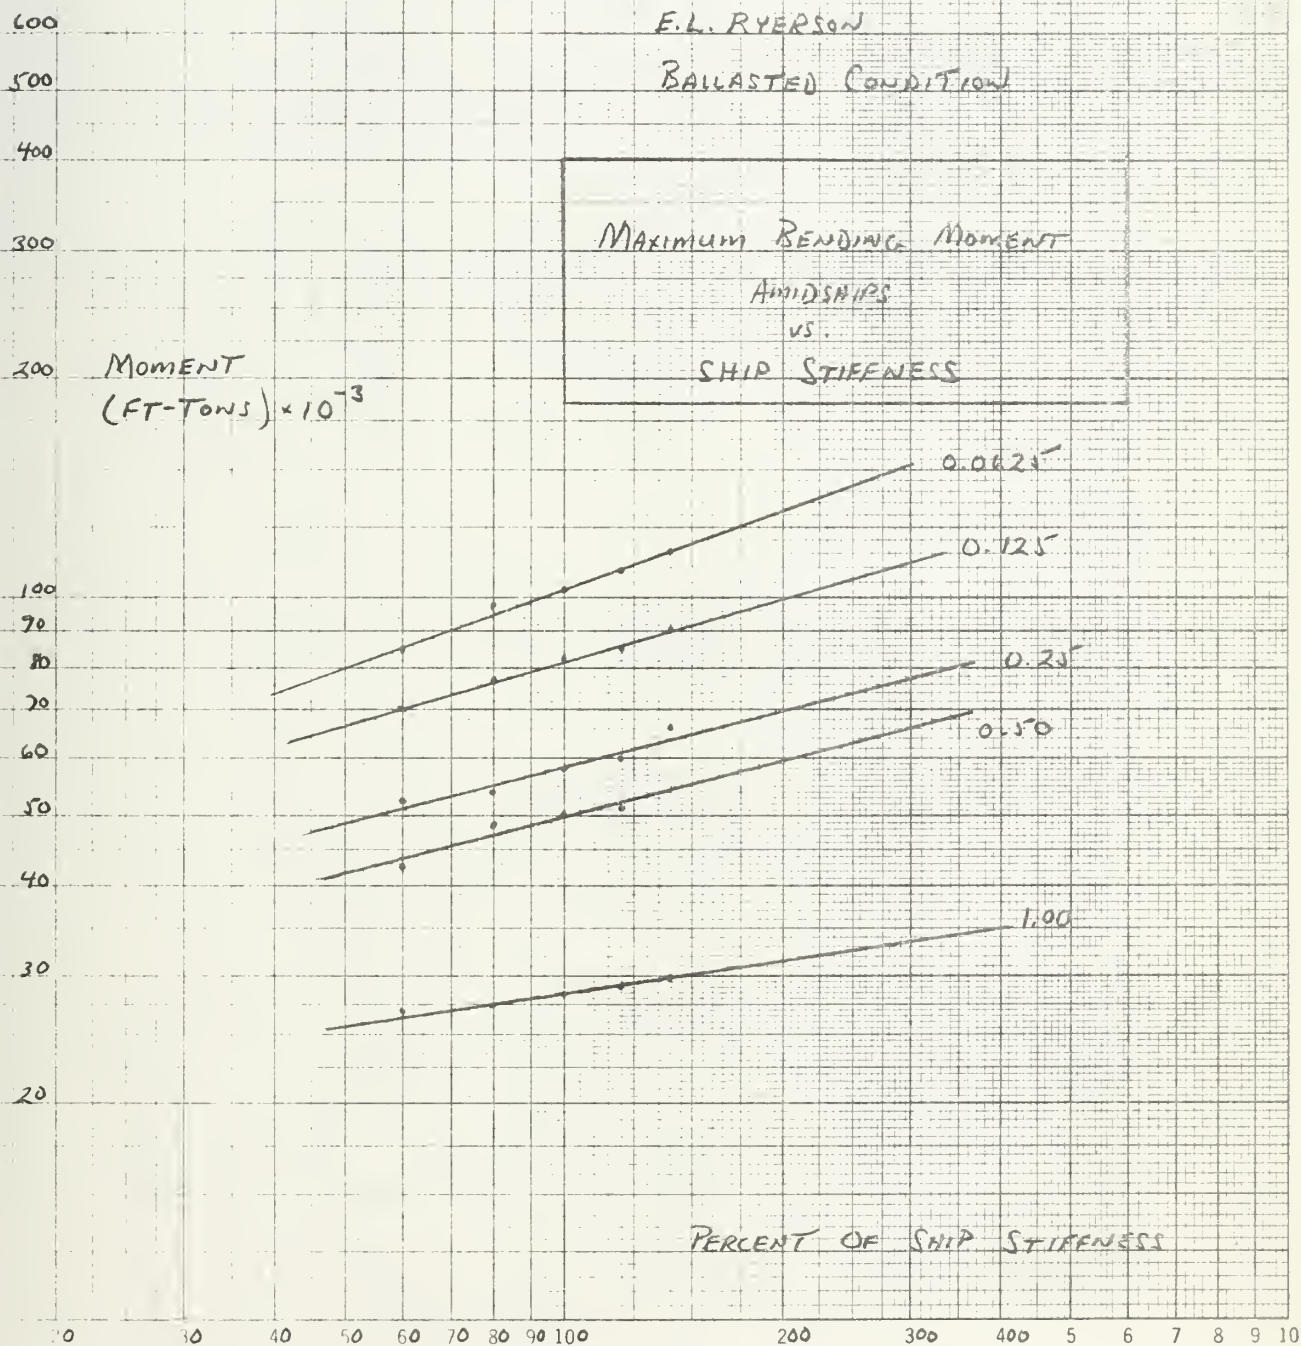 E.L. RYERSON
BALLASTED CONDITION
MAXIMUM BENDING MOMENT
AMIDSHIPS
VS.
SHIP STIFFNESS
MOMENT
(FT-TONS) × 10⁻³
600
500
400
300
200
100
90
80
70
60
50
40
30
20
0.0625
0.125
0.25
0.50
1.00
PERCENT OF SHIP STIFFNESS
20 30 40 50 60 70 80 90 100 200 300 400 5 6 7 8 9 10